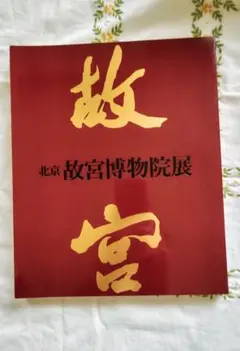 故
北京 故宮博物院展
宮